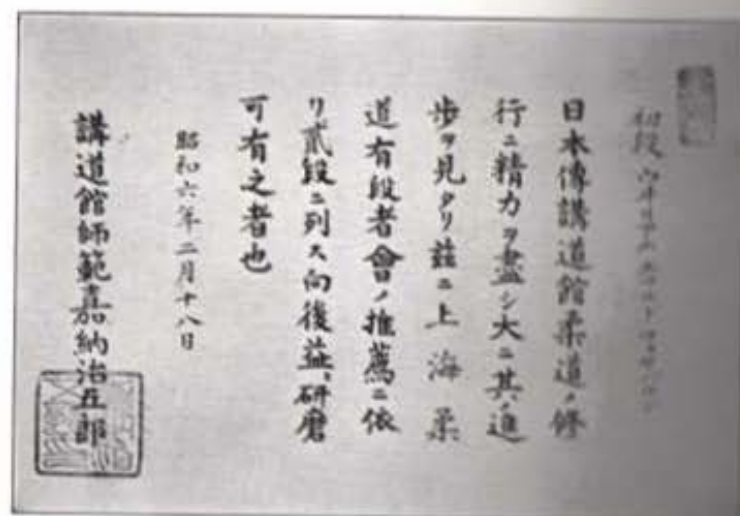 初段
日本傳講道館柔道ノ修
行ニ精力ヲ盡シ大ニ其ノ進
歩ヲ見タリ茲ニ上海柔
道有段者會ノ推薦ニ依
リ貳段ニ列ス向後益〻研磨
可有之者也
昭和六年二月十八日
講道館師範嘉納治五郎